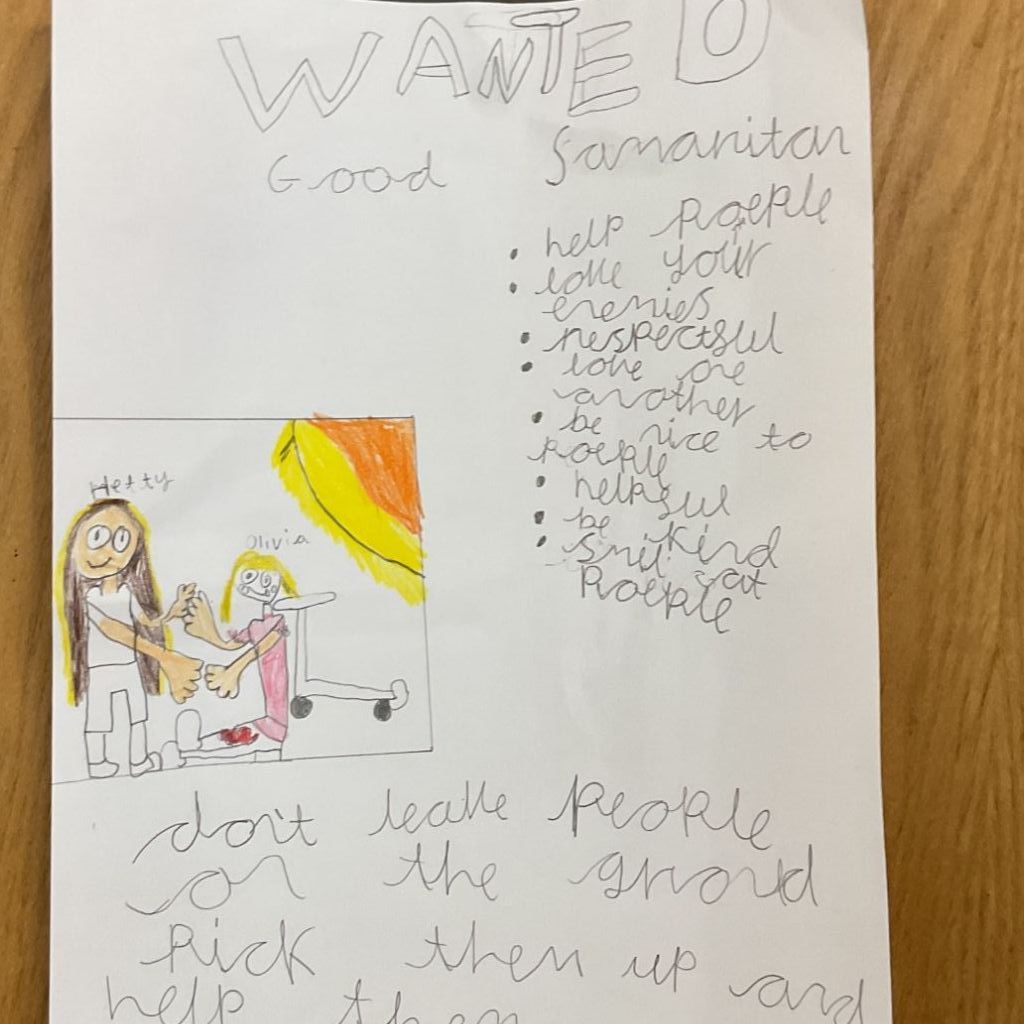 WANTED
Good Samaritan
• help poeple
• love your
enemies
• respectful
• love one
another
• be nice to
poeple
• helpful
• be kind
• smil at
poeple
Hetty
Olivia
don't leave people
on the ground
Pick them up and
help them